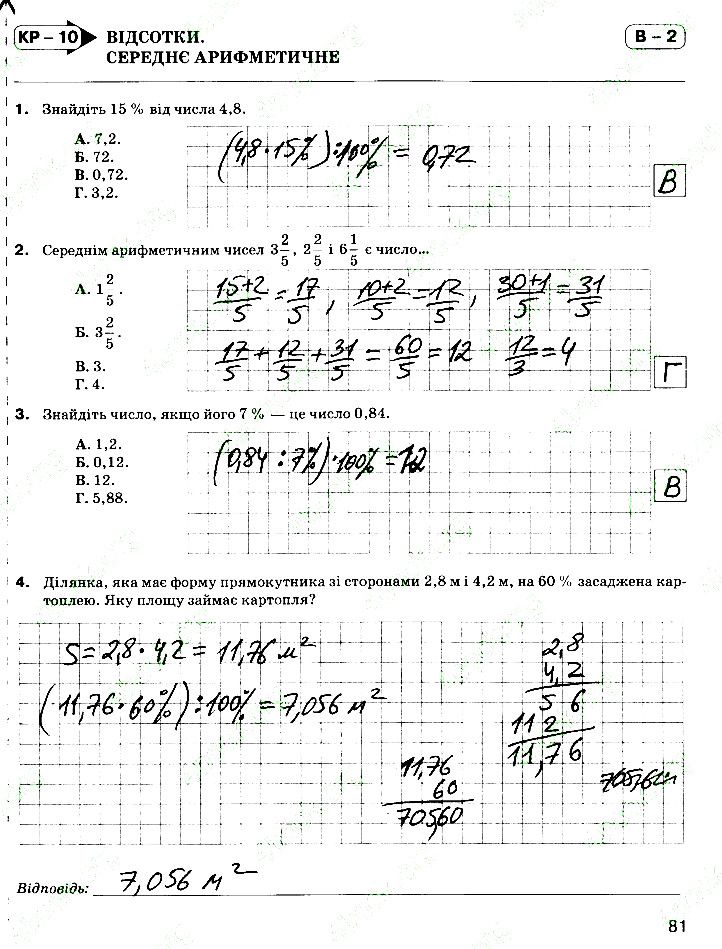 КР – 10 ВІДСОТКИ. В – 2
СЕРЕДНЄ АРИФМЕТИЧНЕ
1. Знайдіть 15 % від числа 4,8.
А. 7,2.
Б. 72.
В. 0,72.
Г. 3,2.
(4,8 · 15%) : 100% = 0,72
В
2. Середнім арифметичним чисел 3 2/5, 2 2/5 і 6 1/5 є число...
А. 1 2/5.
Б. 3 2/5.
В. 3.
Г. 4.
15+2/5 = 17/5, 10+2/5 = 12/5, 30+1/5 = 31/5
17/5 + 12/5 + 31/5 = 60/5 = 12 12/3 = 4
Г
3. Знайдіть число, якщо його 7 % — це число 0,84.
А. 1,2.
Б. 0,12.
В. 12.
Г. 5,88.
(0,84 : 7%) · 100% = 12
В
4. Ділянка, яка має форму прямокутника зі сторонами 2,8 м і 4,2 м, на 60 % засаджена кар-
топлею. Яку площу займає картопля?
S = 2,8 · 4,2 = 11,76 м²
(11,76 · 60%) : 100% = 7,056 м²
2,8
4,2
5 6
112
11,76
11,76
60
705,60
Відповідь: 7,056 м²
81